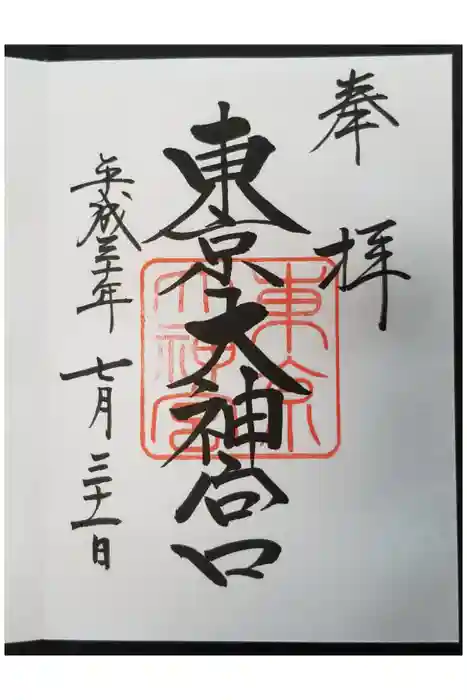 奉拝
東京大神宮
平成三十年 七月三十一日
東京
大神宮